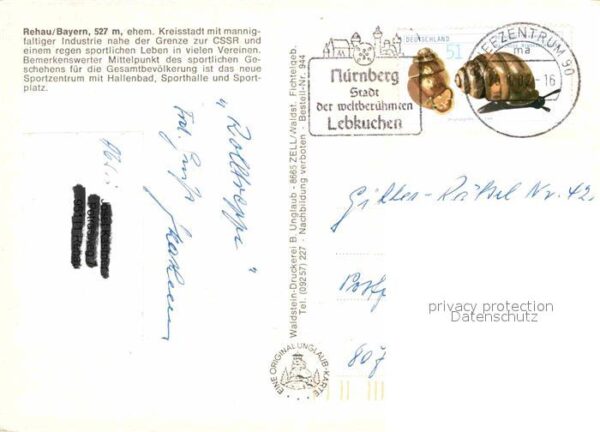 Rehau/Bayern, 527 m, ehem. Kreisstadt mit mannig-
faltiger Industrie nahe der Grenze zur CSSR und
einem regen sportlichen Leben in vielen Vereinen.
Bemerkenswerter Mittelpunkt des sportlichen Ge-
schehens für die Gesamtbevölkerung ist das neue
Sportzentrum mit Hallenbad, Sporthalle und Sport-
platz.
Abs.:
"Rolltreppe"
Waldstein-Druckerei B. Unglaub - 8665 ZELL/Waldst. Fichtelgeb.
Tel. (09257) 227 - Nachbildung verboten - Bestell-Nr. 944
EINE ORIGINAL UNGLAUB-KARTE
Nürnberg
Stadt
der weltberühmten
Lebkuchen
DEUTSCHLAND
51
BRIEFZENTRUM 90
ma
-16
Gitter-Rätsel Nr. 42
Postf
807
privacy protection
Datenschutz